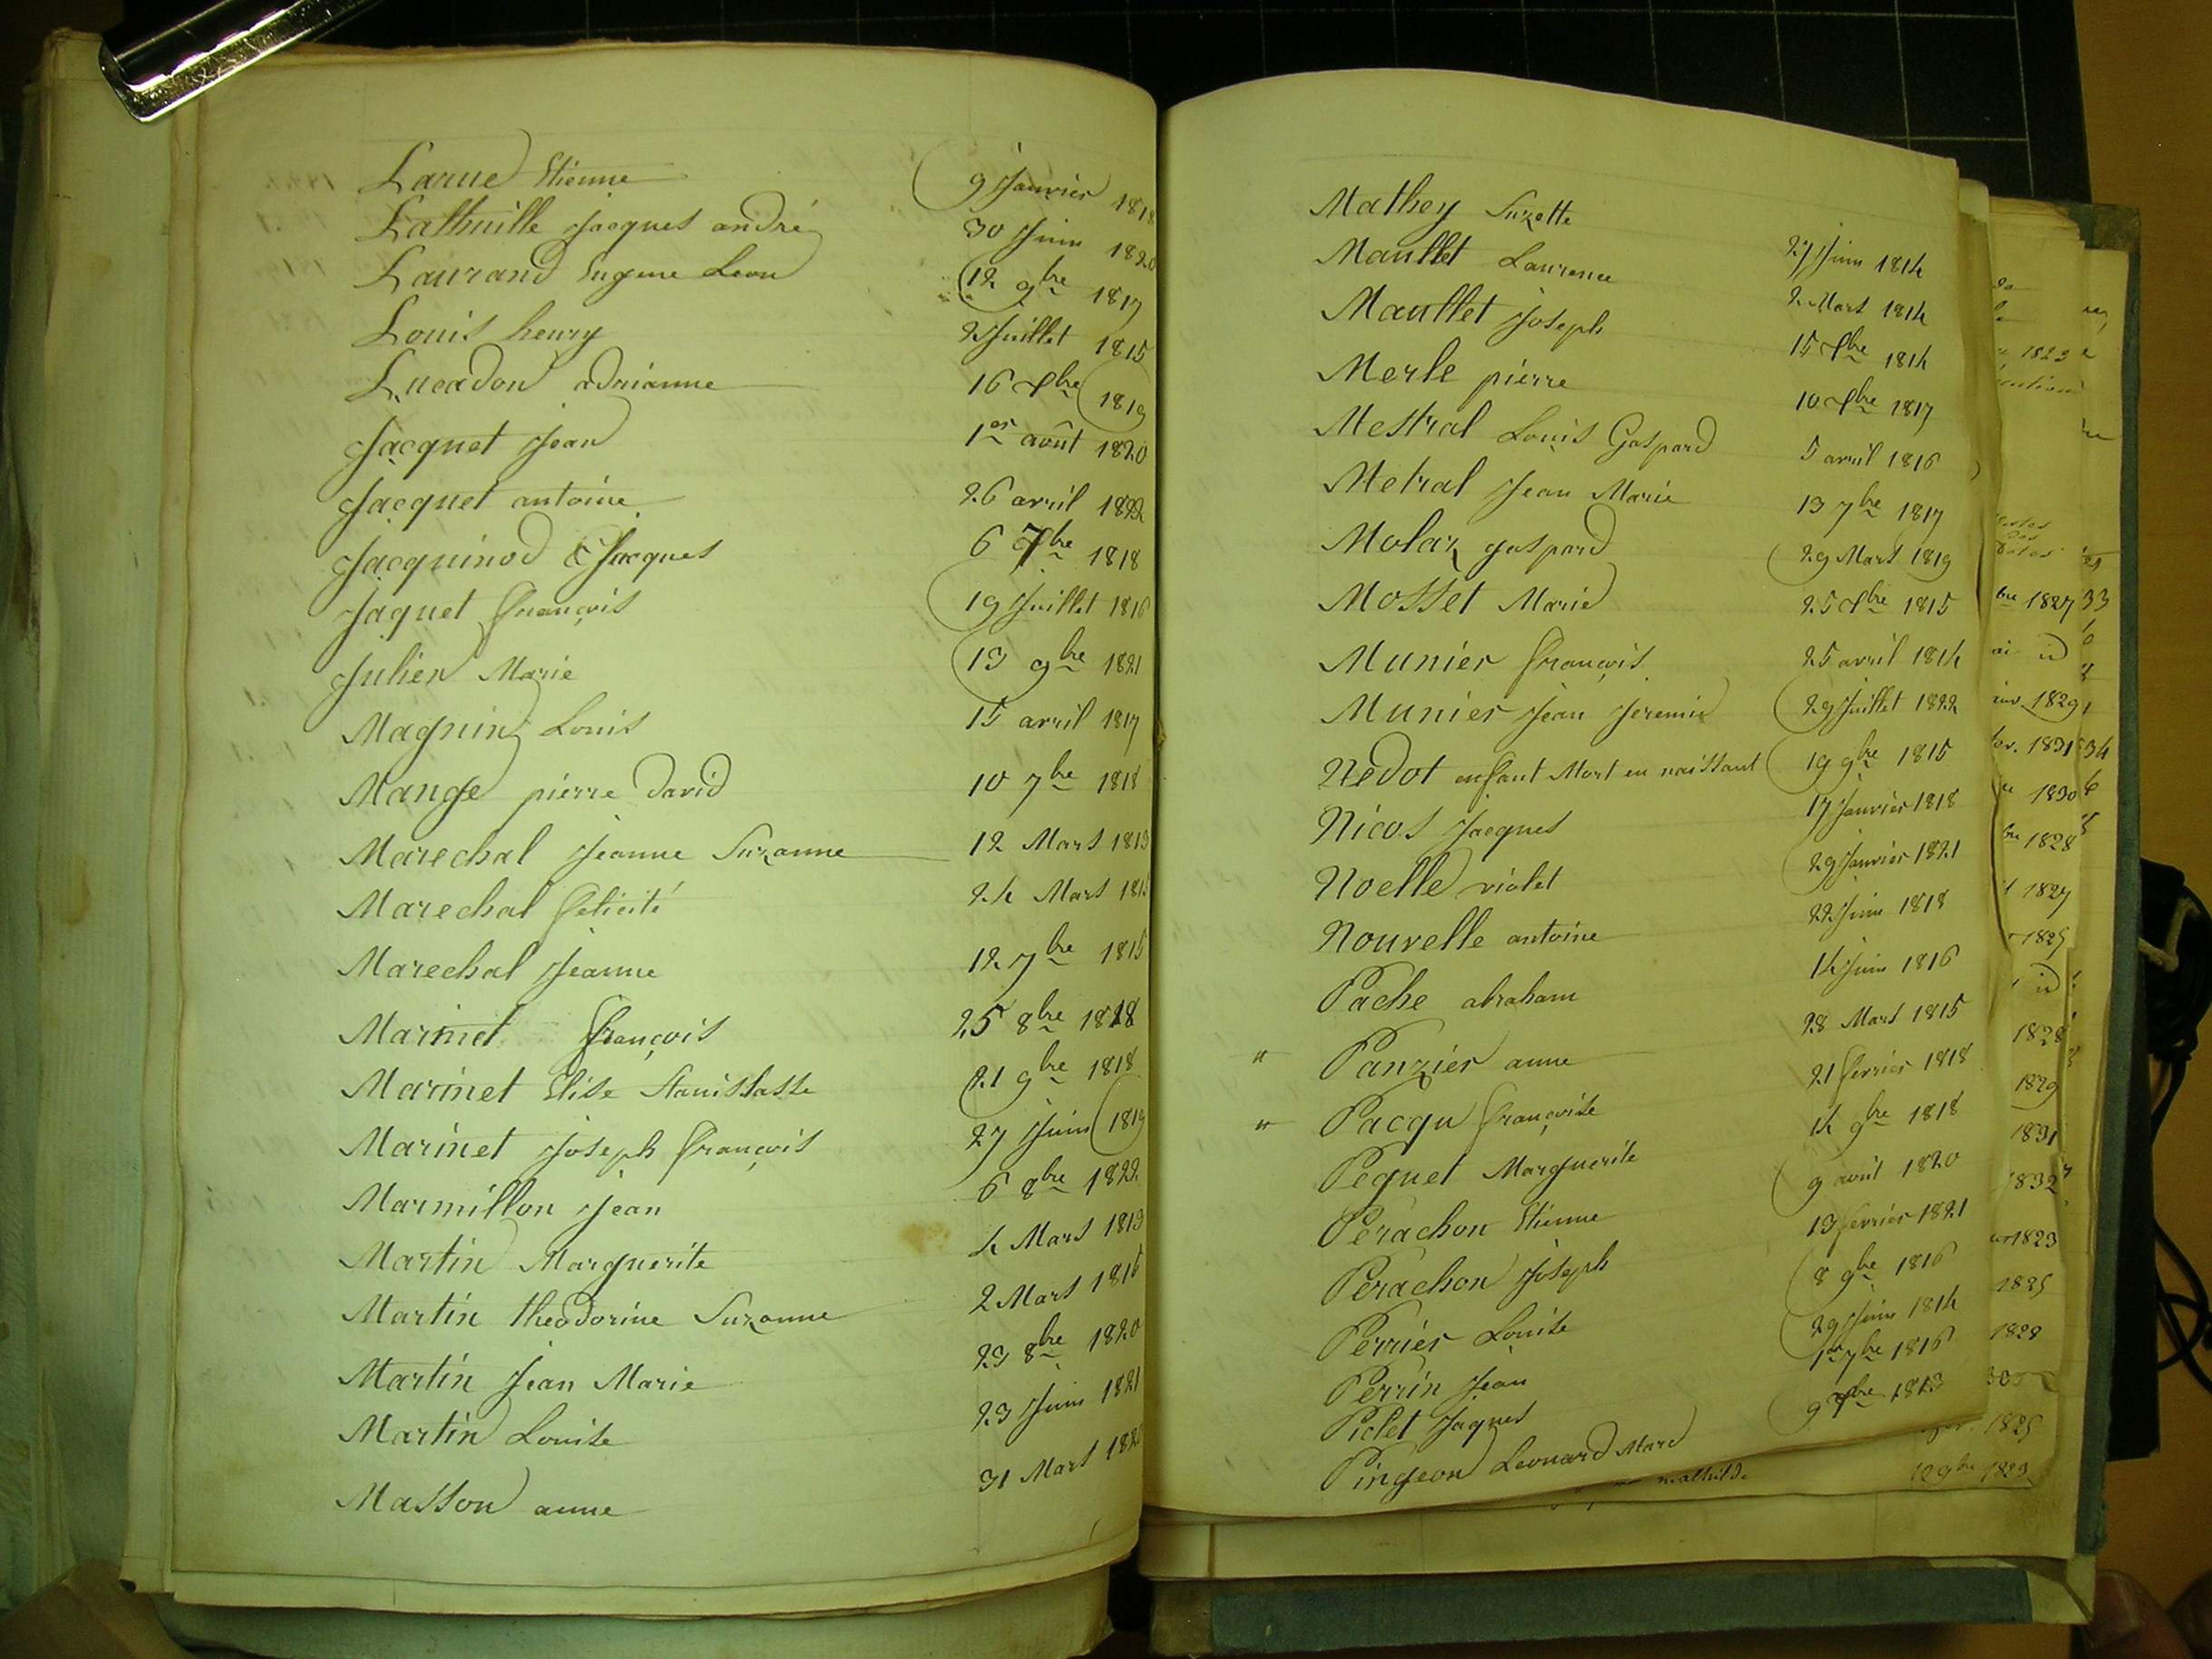 Larue Etienne 9 Janvier 1818
Lathuille Jacques andré 30 Juin 1820
Laurand Eugene Leon 12 9bre 1817
Louis henry 2 Juillet 1815
Lucadon adrianne 16 Xbre 1819
Jacquet Jean 1er août 1820
Jacquet antoine 26 avril 1822
Jacquinod Jacques 6 7bre 1818
Jaquet françois 19 Juillet 1816
Julien Marie 13 9bre 1821
Magnin Louis 15 avril 1817
Mange pierre David 10 7bre 1818
Marechal Jeanne Suzanne 12 Mars 1813
Marechal felicité 24 Mars
Marechal Jeanne 12 7bre 1815
Marinet françois 25 8bre 1818
Marinet Elise Stanislasse 21 9bre 1818
Marinet Joseph françois 27 Juin 1819
Marmillon Jean 6 8bre 1822
Martin Marguerite 4 Mars 1813
Martin theodorine Suzanne 2 Mars 1816
Martin Jean Marie 23 8bre 1820
Martin Louise 23 Juin 1821
Masson anne 31 Mars
Mathey Suzette 27 Juin 1814
Maullet Laurence 2 Mars 1814
Maullet Joseph 15 Xbre 1814
Merle pierre 10 Xbre 1817
Mestral Louis Gaspard 5 avril 1816
Metral Jean Marie 13 7bre 1817
Molaz gaspard 29 Mars 1819
Mosset Marie 25 Xbre 1815
Munier françois 25 avril 1814
Munier Jean Jeremie 29 Juillet 1822
Nedot enfant Mort en naissant 19 9bre 1815
Nicos Jacques 17 Janvier 1818
Noelle violet 29 Janvier 1821
Nouvelle antoine 22 Juin 1818
Pache abraham 14 Juin 1816
" Panzier anne 28 Mars 1815
" Pacqu françoise 21 fevrier 1818
Pequet Marguerite 14 9bre 1818
Perachon Etienne 9 avril 1820
Perachon Joseph 13 fevrier 1821
Perrier Louise 8 9bre 1816
Perrin Jean 29 Juin 1814
Pictet Jaques 1er 7bre 1816
Pingeon Leonard Marc 9 Xbre 1813
mathilde 12 9bre 1823
1823
1827
id
1829
1831
1830
1828
1827
1825
id
1828
1829
1831
1832
1823
1825
1828
1825